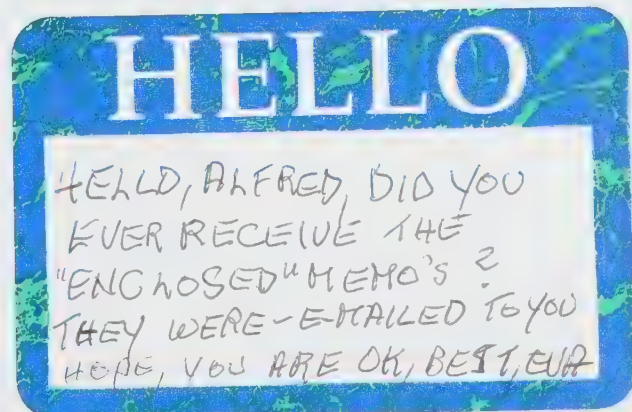 HELLO
HELLO, ALFRED, DID YOU
EVER RECEIVE THE
"ENCLOSED" MEMO'S ?
THEY WERE - E-MAILED TO YOU
HOPE, YOU ARE OK, BEST, EVA